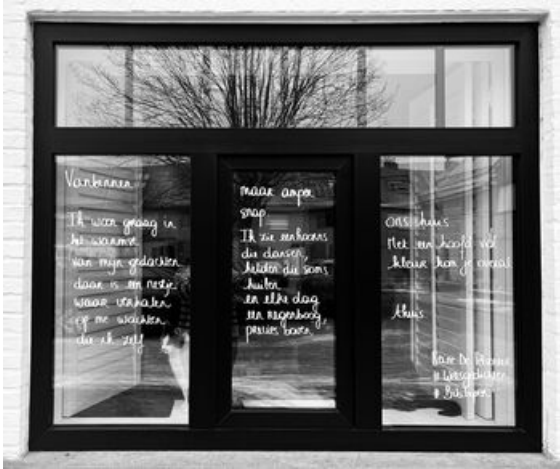 Vanbinnen
Ik woon graag in
het warmst
van mijn gedachten
daar is een nestje
waar verhalen
op me wachten
die ik zelf
maar amper
snap
Ik zie eenhoorns
die dansen,
helden die soms
huilen
en elke dag
een regenboog,
precies boven
ons huis
Met een hoofd vol
kleur kan je overal
thuis